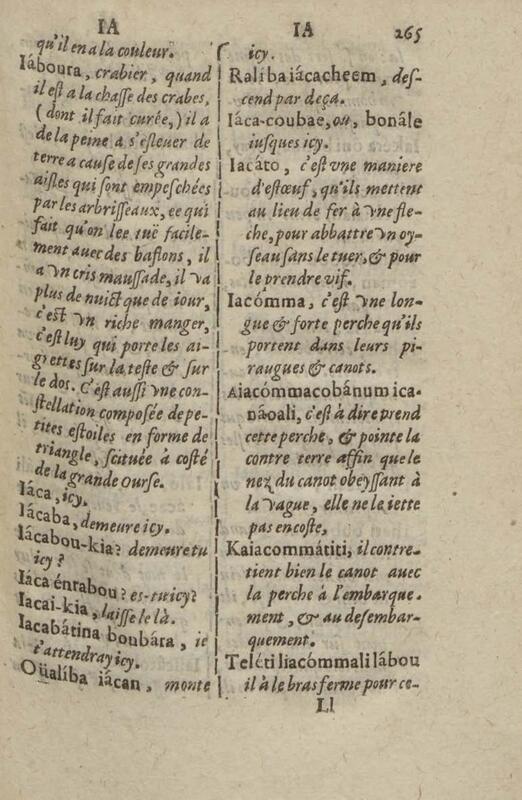 IA
qu'il en a la couleur.
Iáboura, crabier, quand
il est a la chaſſe des crabes,
(dont il fait curée,) il a
de la peine a s'eſleuer de
terre a cauſe de ſes grandes
aiſles qui ſont empeſchées
par les arbriſſeaux, ee qui
fait qu'on lee tuë facile-
ment auec des baſtons, il
a vn cris mauſſade, il va
plus de nuict que de iour,
c'est vn riche manger,
c'eſt luy qui porte les ai-
grettes ſur la teſte & ſur
le dos. C'eſt auſſi vne con-
ſtellation compoſée de pe-
tites eſtoiles en forme de
triangle, ſcituée à coſté
de la grande Ourſe.
Iáca, icy.
Iácaba, demeure icy.
Iácabou-kia? demeure tu
icy?
Iáca énrabou? es-tu icy?
Iacai-kia, laiſſe le là.
Iacabátina boubára, ie
t'attendray icy.
Oüalíba iácan, monte
IA 265
icy.
Ralíba iácacheem, deſ-
cend par deça.
Iáca-coubae, ou, bonále
iuſques icy.
Iacáto, c'eſt vne maniere
d'eſtœuf, qu'ils mettent
au lieu de fer à vne fle-
che, pour abbattre vn oy-
ſeau ſans le tuer, & pour
le prendre vif.
Iacómma, c'eſt vne lon-
gue & forte perche qu'ils
portent dans leurs pi-
raugues & canots.
Aiacómmacobánum ica-
náoali, c'eſt à dire prend
cette perche, & pointe la
contre terre affin que le
nez du canot obeyſſant à
la vague, elle ne le iette
pas en coſte,
Kaiacommátiti, il contre-
tient bien le canot auec
la perche à l'embarque-
ment, & au deſembar-
quement.
Teléti liacómmali lábou
il à le bras ferme pour ce-
Ll